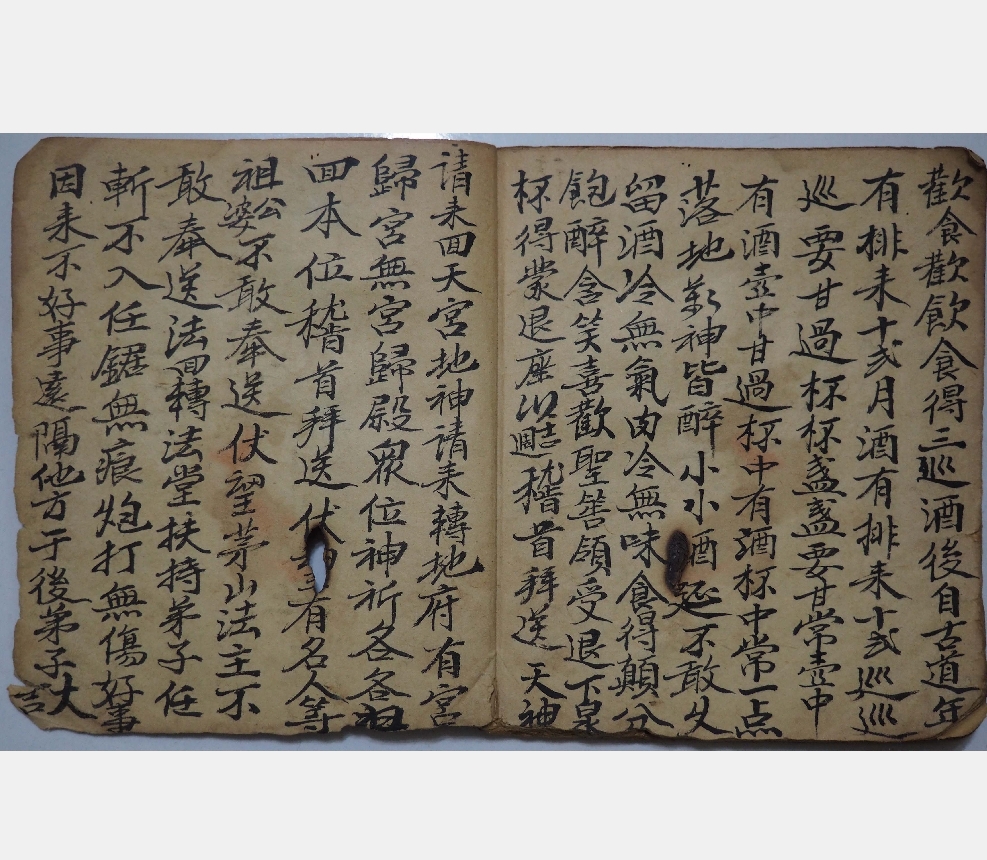 歡食歡飲食得三巡酒後自古道年
有排来十弍月酒有排来十弍巡巡
巡要甘過杯杯盞盞要甘常壺中
有酒壺中甘過杯中有酒杯中常一点
落地万神皆醉小小酒筵不敢久
留酒冷無氣肉冷無味食得顛分
飽醉含笑喜歡聖筶領受退下泉
杯得蒙退座稽首拜送天神
请来回天宮地神请来轉地府有宮
歸宮無宮歸殿衆位神祈各各
回本位稽首拜送伏有名人等
祖公婆不敢奉送伏望茅山法主不
敢奉送法回轉法堂扶持弟子任
斬不入任鋸無痕炮打無傷好事
因来不好事遠隔他方于後弟子大
吉